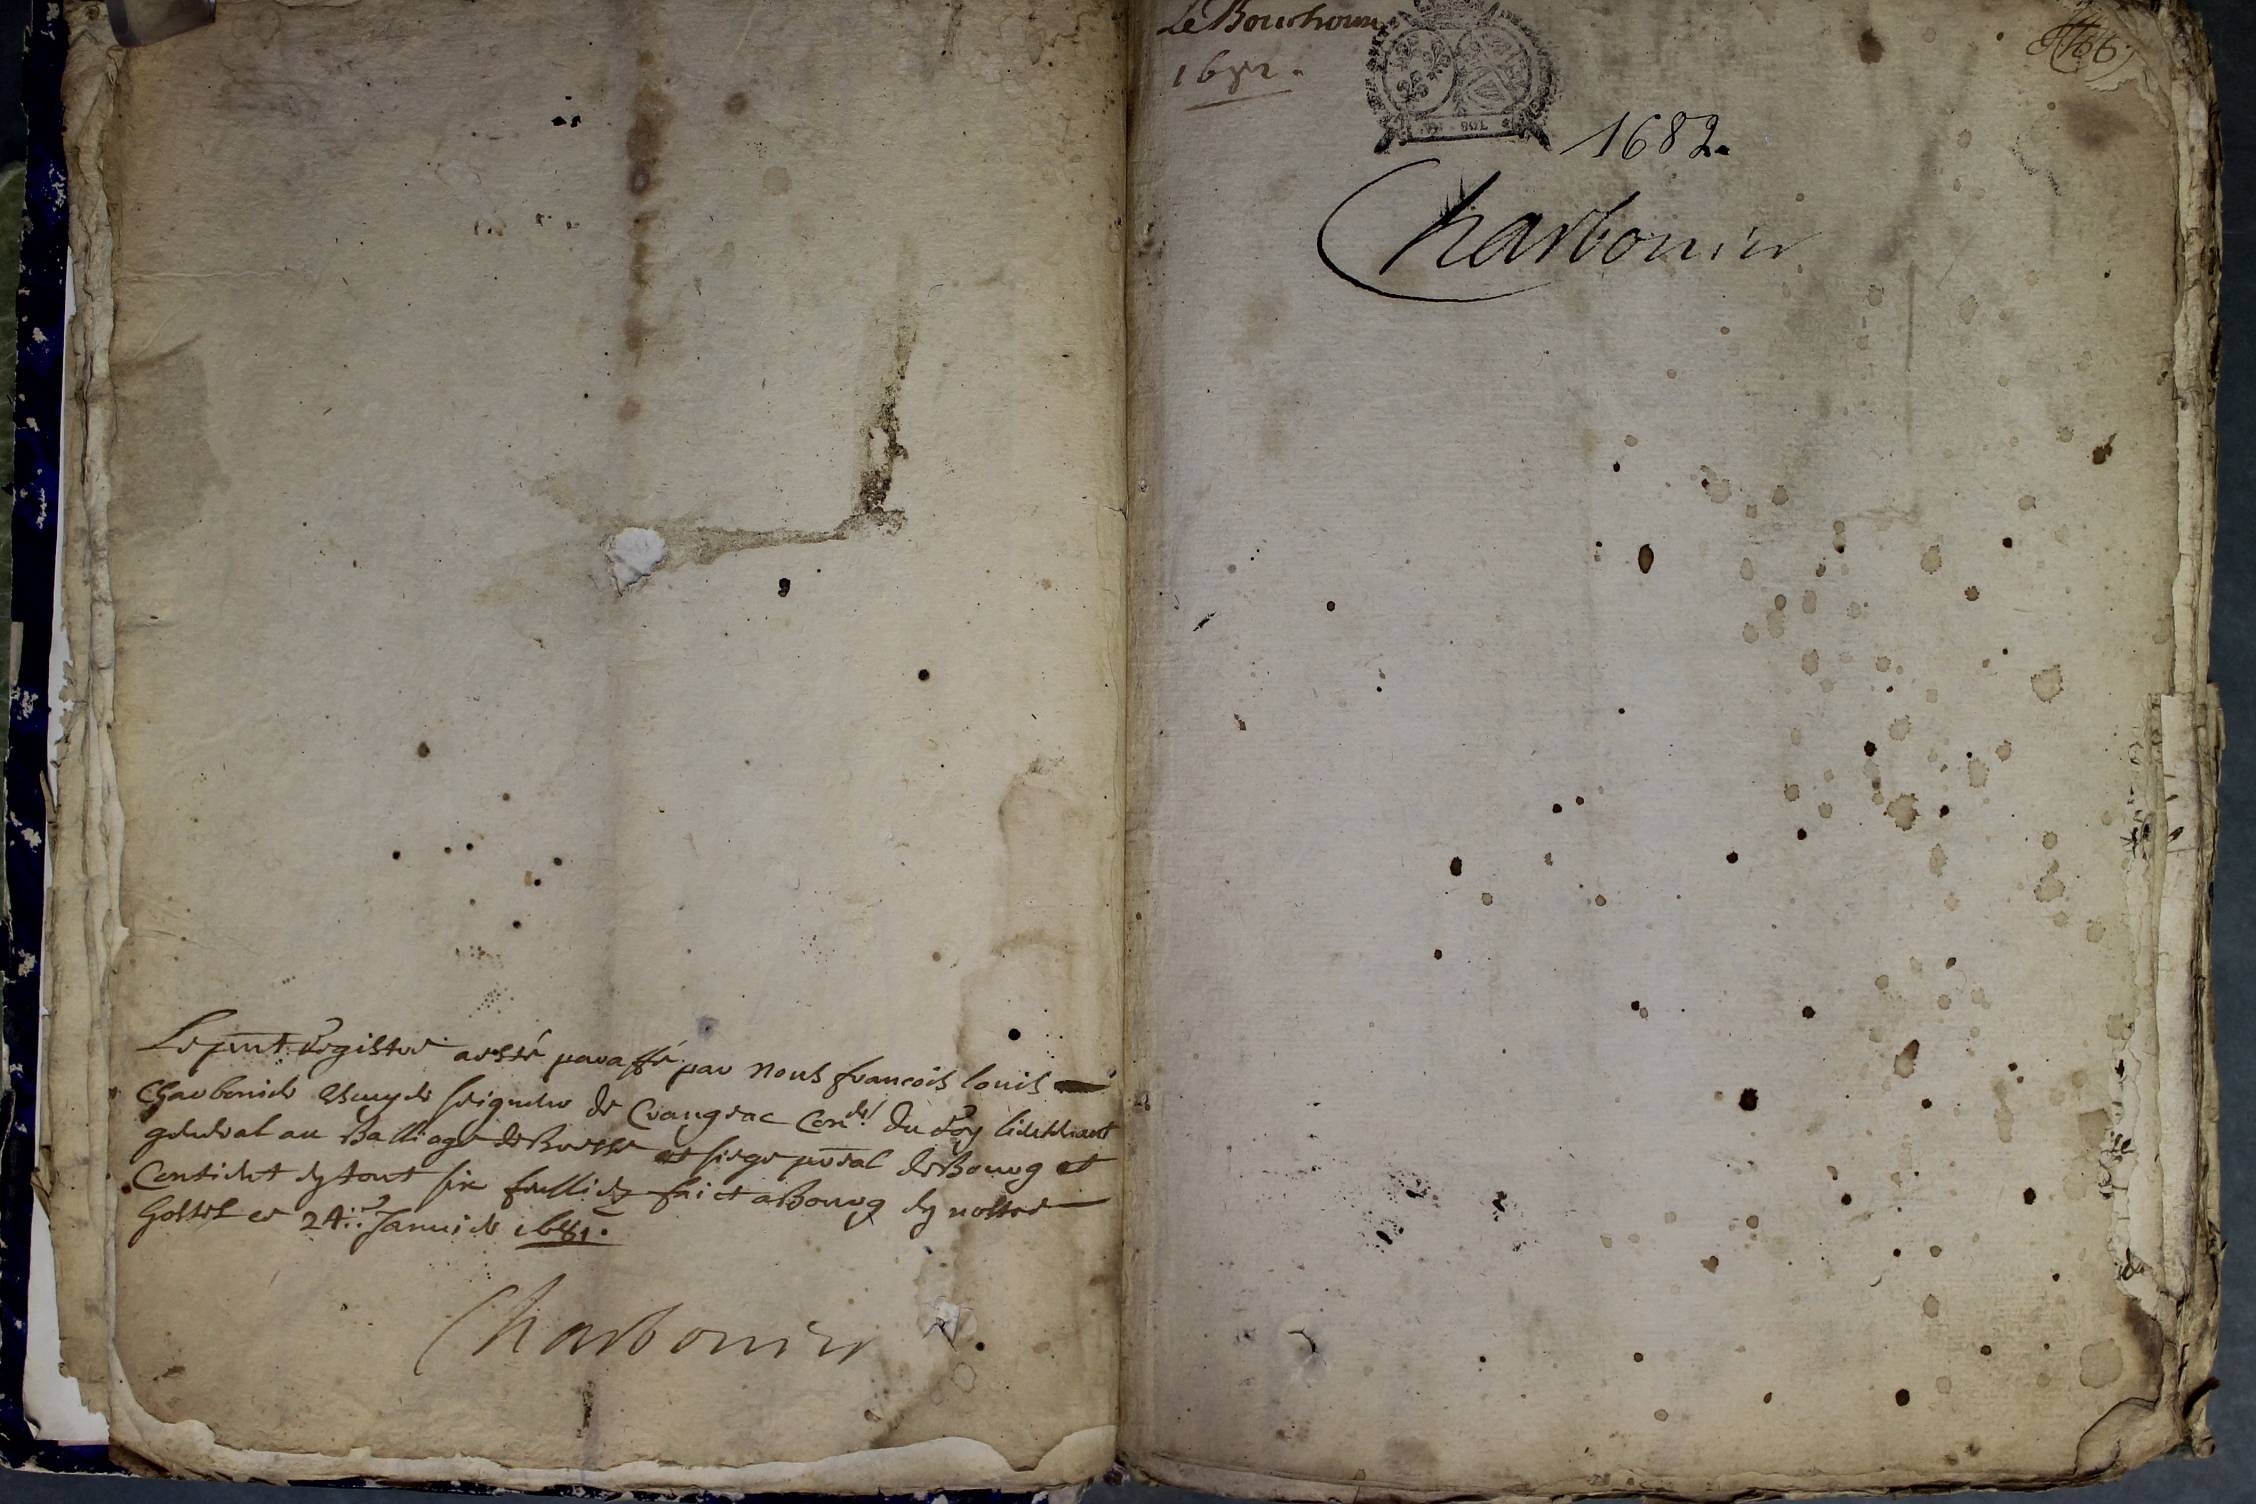 Le pnt Registre a esté paraffé par nous francois louis
Charbonier Escuyer seigneur de Crangeac Coner du Roy lieutenant
general au Balliage de Bresse et siege pnal de Bourg et
Contient en tout six feulliez faict a Bourg en nostre
hostel ce 24e Januier 1681.
Charbonier
Le Bouchoux
1682.
1682.
Charbonier